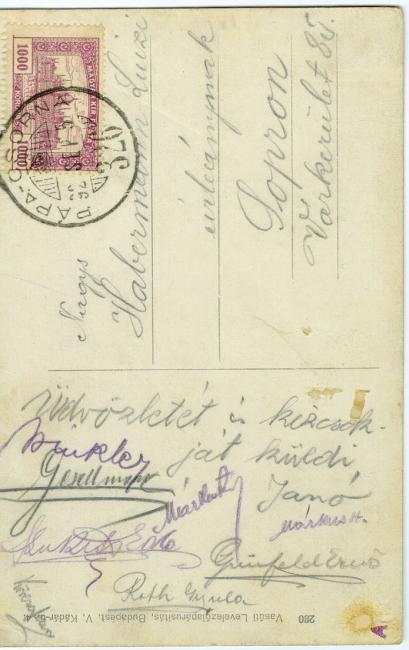 1000 MAGYAR KIR. POSTA 1000
PÁPA-CSORNA
376
Nagys
Habermann Luizi
úrleánynak
Sopron
Várkerület 85.
Üdvözletét és kézcsók-
ját küldi
Janó
Winkler
Gesellmann
Márkus H.
Grünfeld Ernő
Roth Gyula
280 Vasúti Levelezőlapárusítás, Budapest, V, Kádár-u. 4.
A